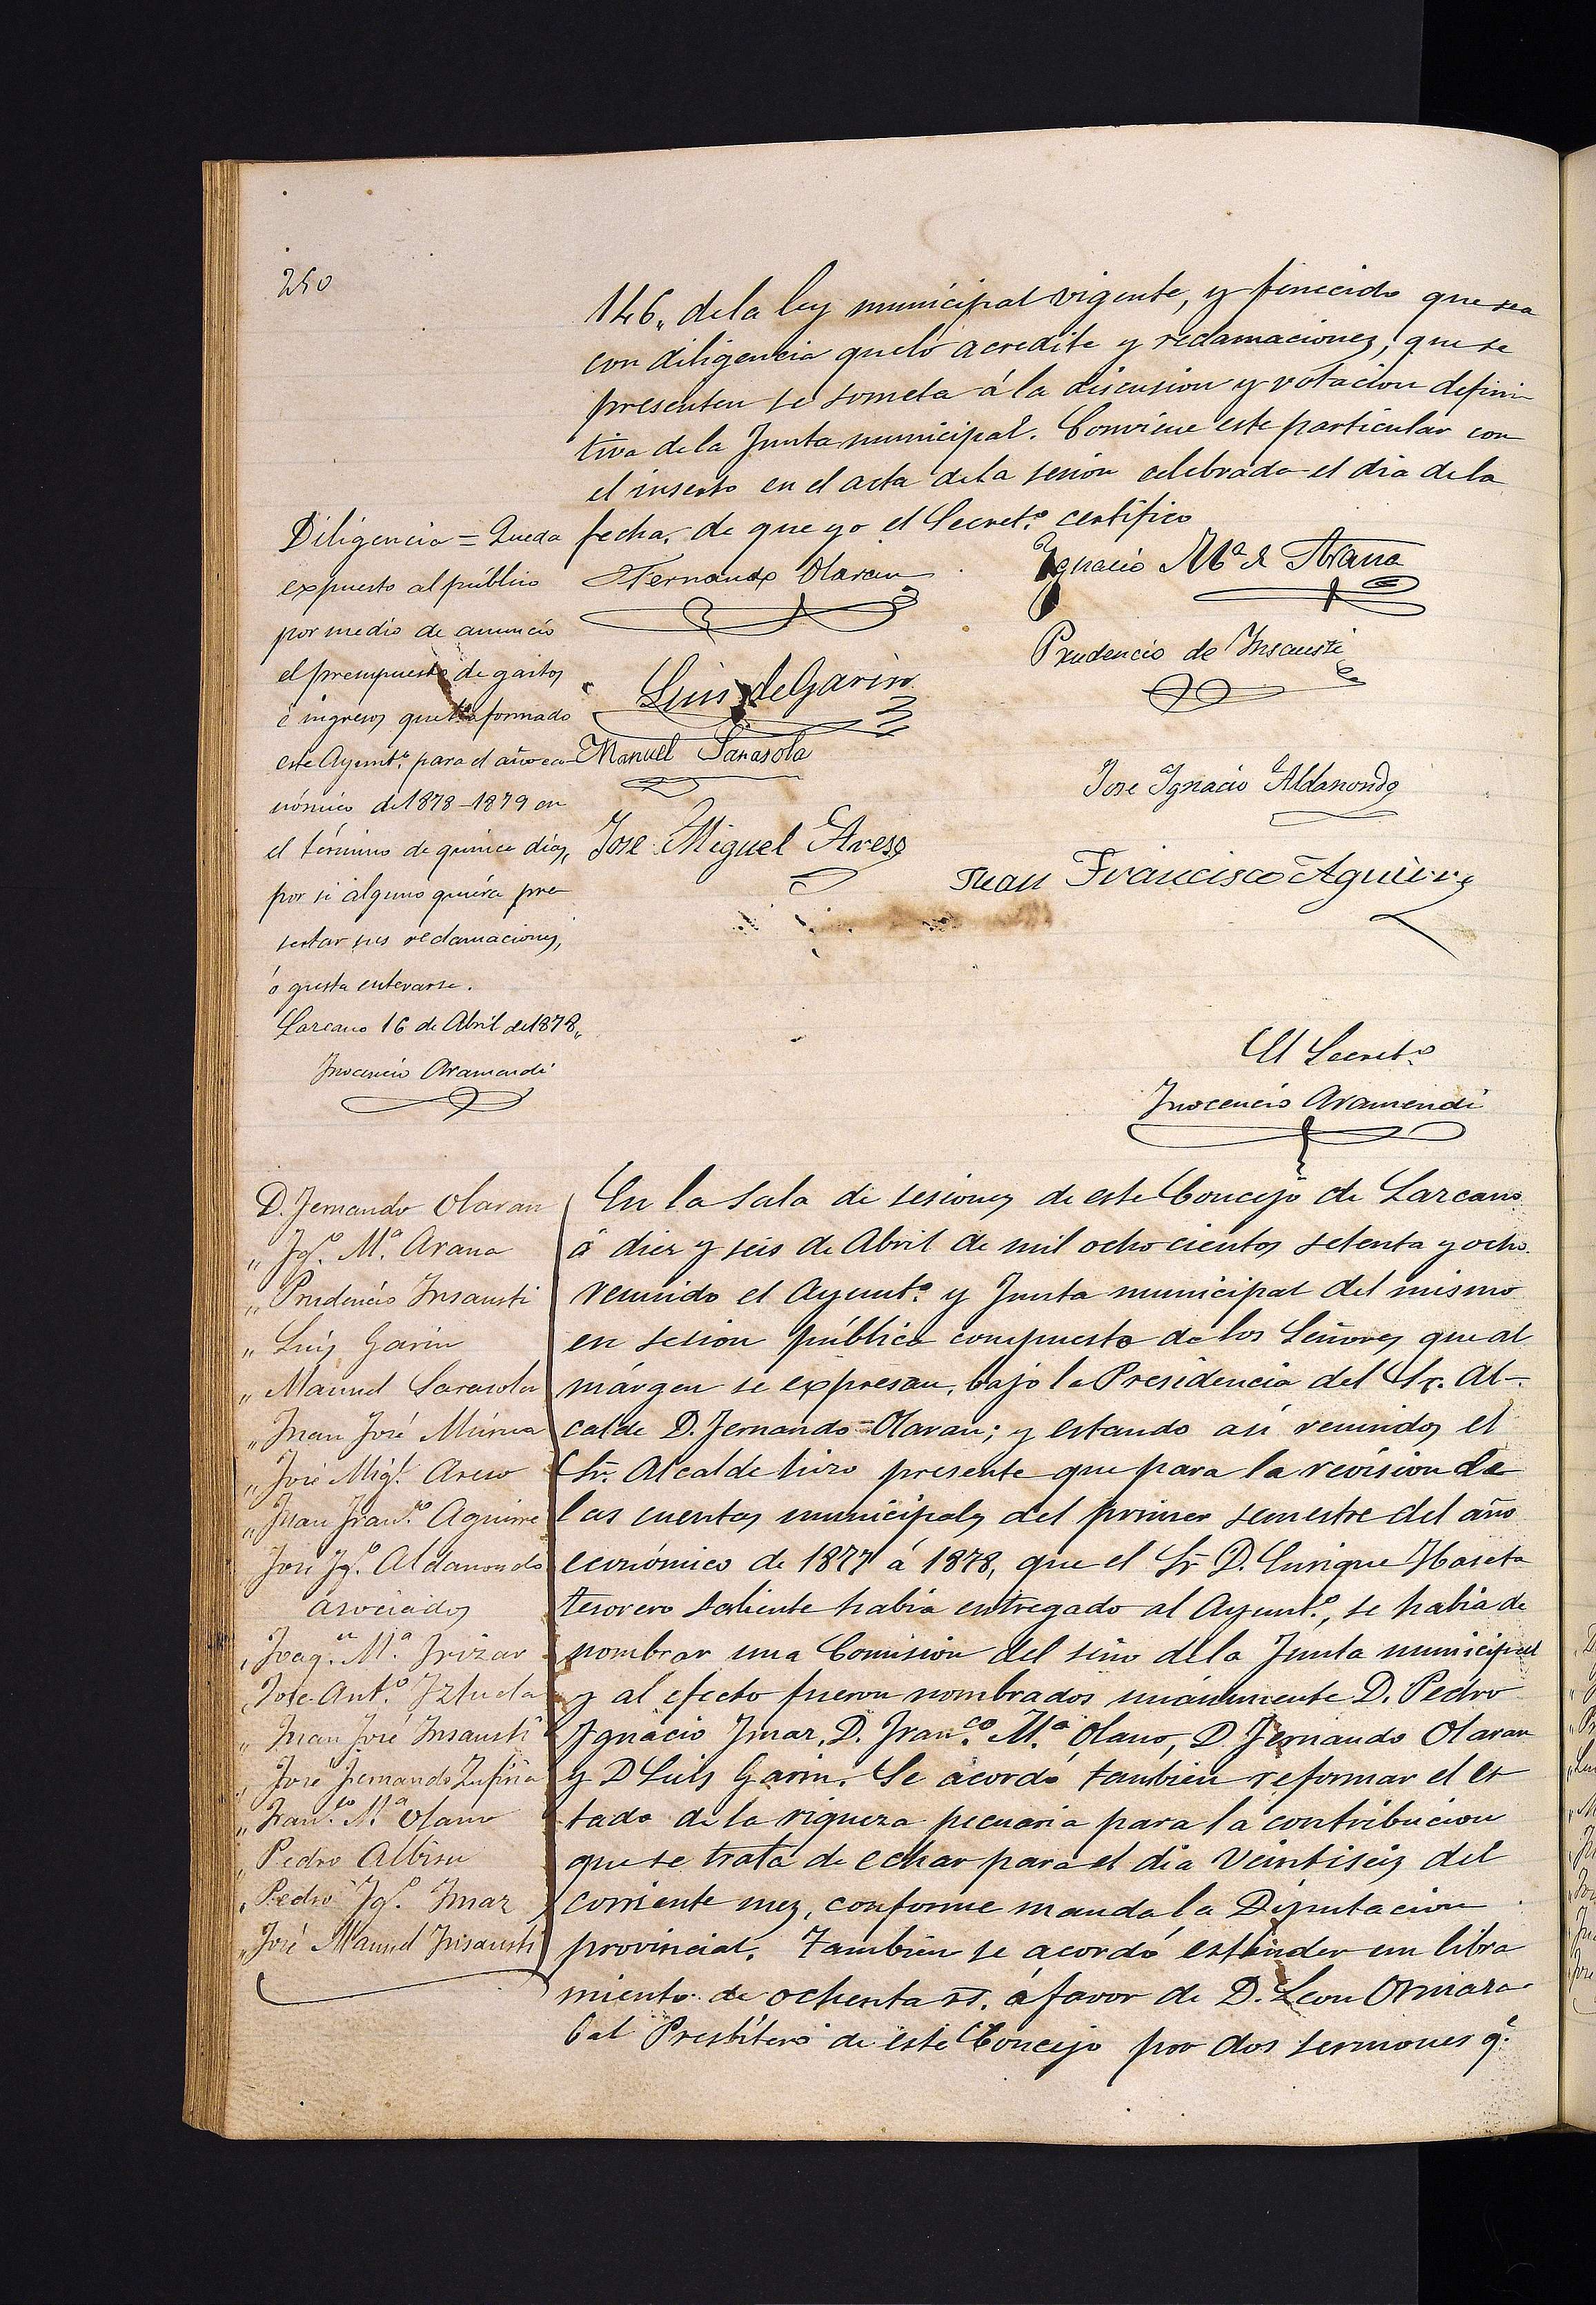 250
146,, de la ley municipal vigente, y fenecido que sea
con diligencia que lo acredite y reclamaciones, que se
presenten se someta á la discusion y votacion defini-
tiva de la Junta municipal. Conviene este particular con
el inserto en el acta de la sesion celebrada el dia de la
fecha, de que yo el Secret.º certifico
Fernando Olaran
Ignacio M.ª de Arana
Prudencio de Insausti
Luis de Garin
Manuel Sarasola
Jose Ignacio Aldanondo
Jose Miguel Areso
Juan Francisco Aguirre
El Secret.º
Inocencio Aramendi
Diligencia = Queda
expuesto al público
por medio de anuncio
el presupuesto de gastos
é ingresos que ha formado
este Ayunt.º para el año eco-
nómico de 1878-1879 en
el término de quince dias,
por si alguno quiera pre-
sentar sus reclamaciones,
ó gusta enterarse.
Larcano 16 de Abril de 1878,,
Inocencio Aramendi
D. Fernando Olaran
,, Ig.º M.ª Arana
,, Prudencio Insausti
,, Luis Garin
,, Manuel Sarasola
,, Juan José Múrua
,, José Mig.l Areso
,, Juan Fran.co Aguirre
José Ig.º Aldanondo
asociados
,, Joaq.n M.ª Irizar
,, Jose Ant.º Iztueta
,, Juan José Insausti
,, José Fernando Zufiria
,, Fran.co M.ª Olano
,, Pedro Albisu
,, Pedro Ig.º Imaz
,, José Manuel Insausti
En la Sala de sesiones de este Concejo de Larcano
á diez y seis de Abril de mil ochocientos setenta y ocho.
reunido el Ayunt.º y Junta municipal del mismo
en sesion pública compuesta de los Señores que al
márgen se expresan, bajo la Presidencia del Sr. Al-
calde D. Fernando Olaran; y estando asi reunidos el
Sr. Alcalde hizo presente que para la revision de
las cuentas municipales del primer semestre del año
económico de 1877 á 1878, que el Sr D. Enrique Ibaseta
tesorero saliente habia entregado al Ayunt.º, se habia de
nombrar una Comision del sino de la Junta municipal
y al efecto fueron nombrados unánimente D. Pedro
Ignacio Imaz, D. Fran.co M.ª Olano, D. Fernando Olaran
y D Luis Garin. Se acordó tambien reformar el es-
tado de la riqueza pecuaria para la contribucion
que se trata de echar para el dia veintiseis del
corriente mes, conforme manda la Diputacion
provincial. Tambien se acordó estender un libra
miento de ochenta rs. á favor de D. Leon Ormaza-
bal Presbítero de este Concejo por dos sermones q.e